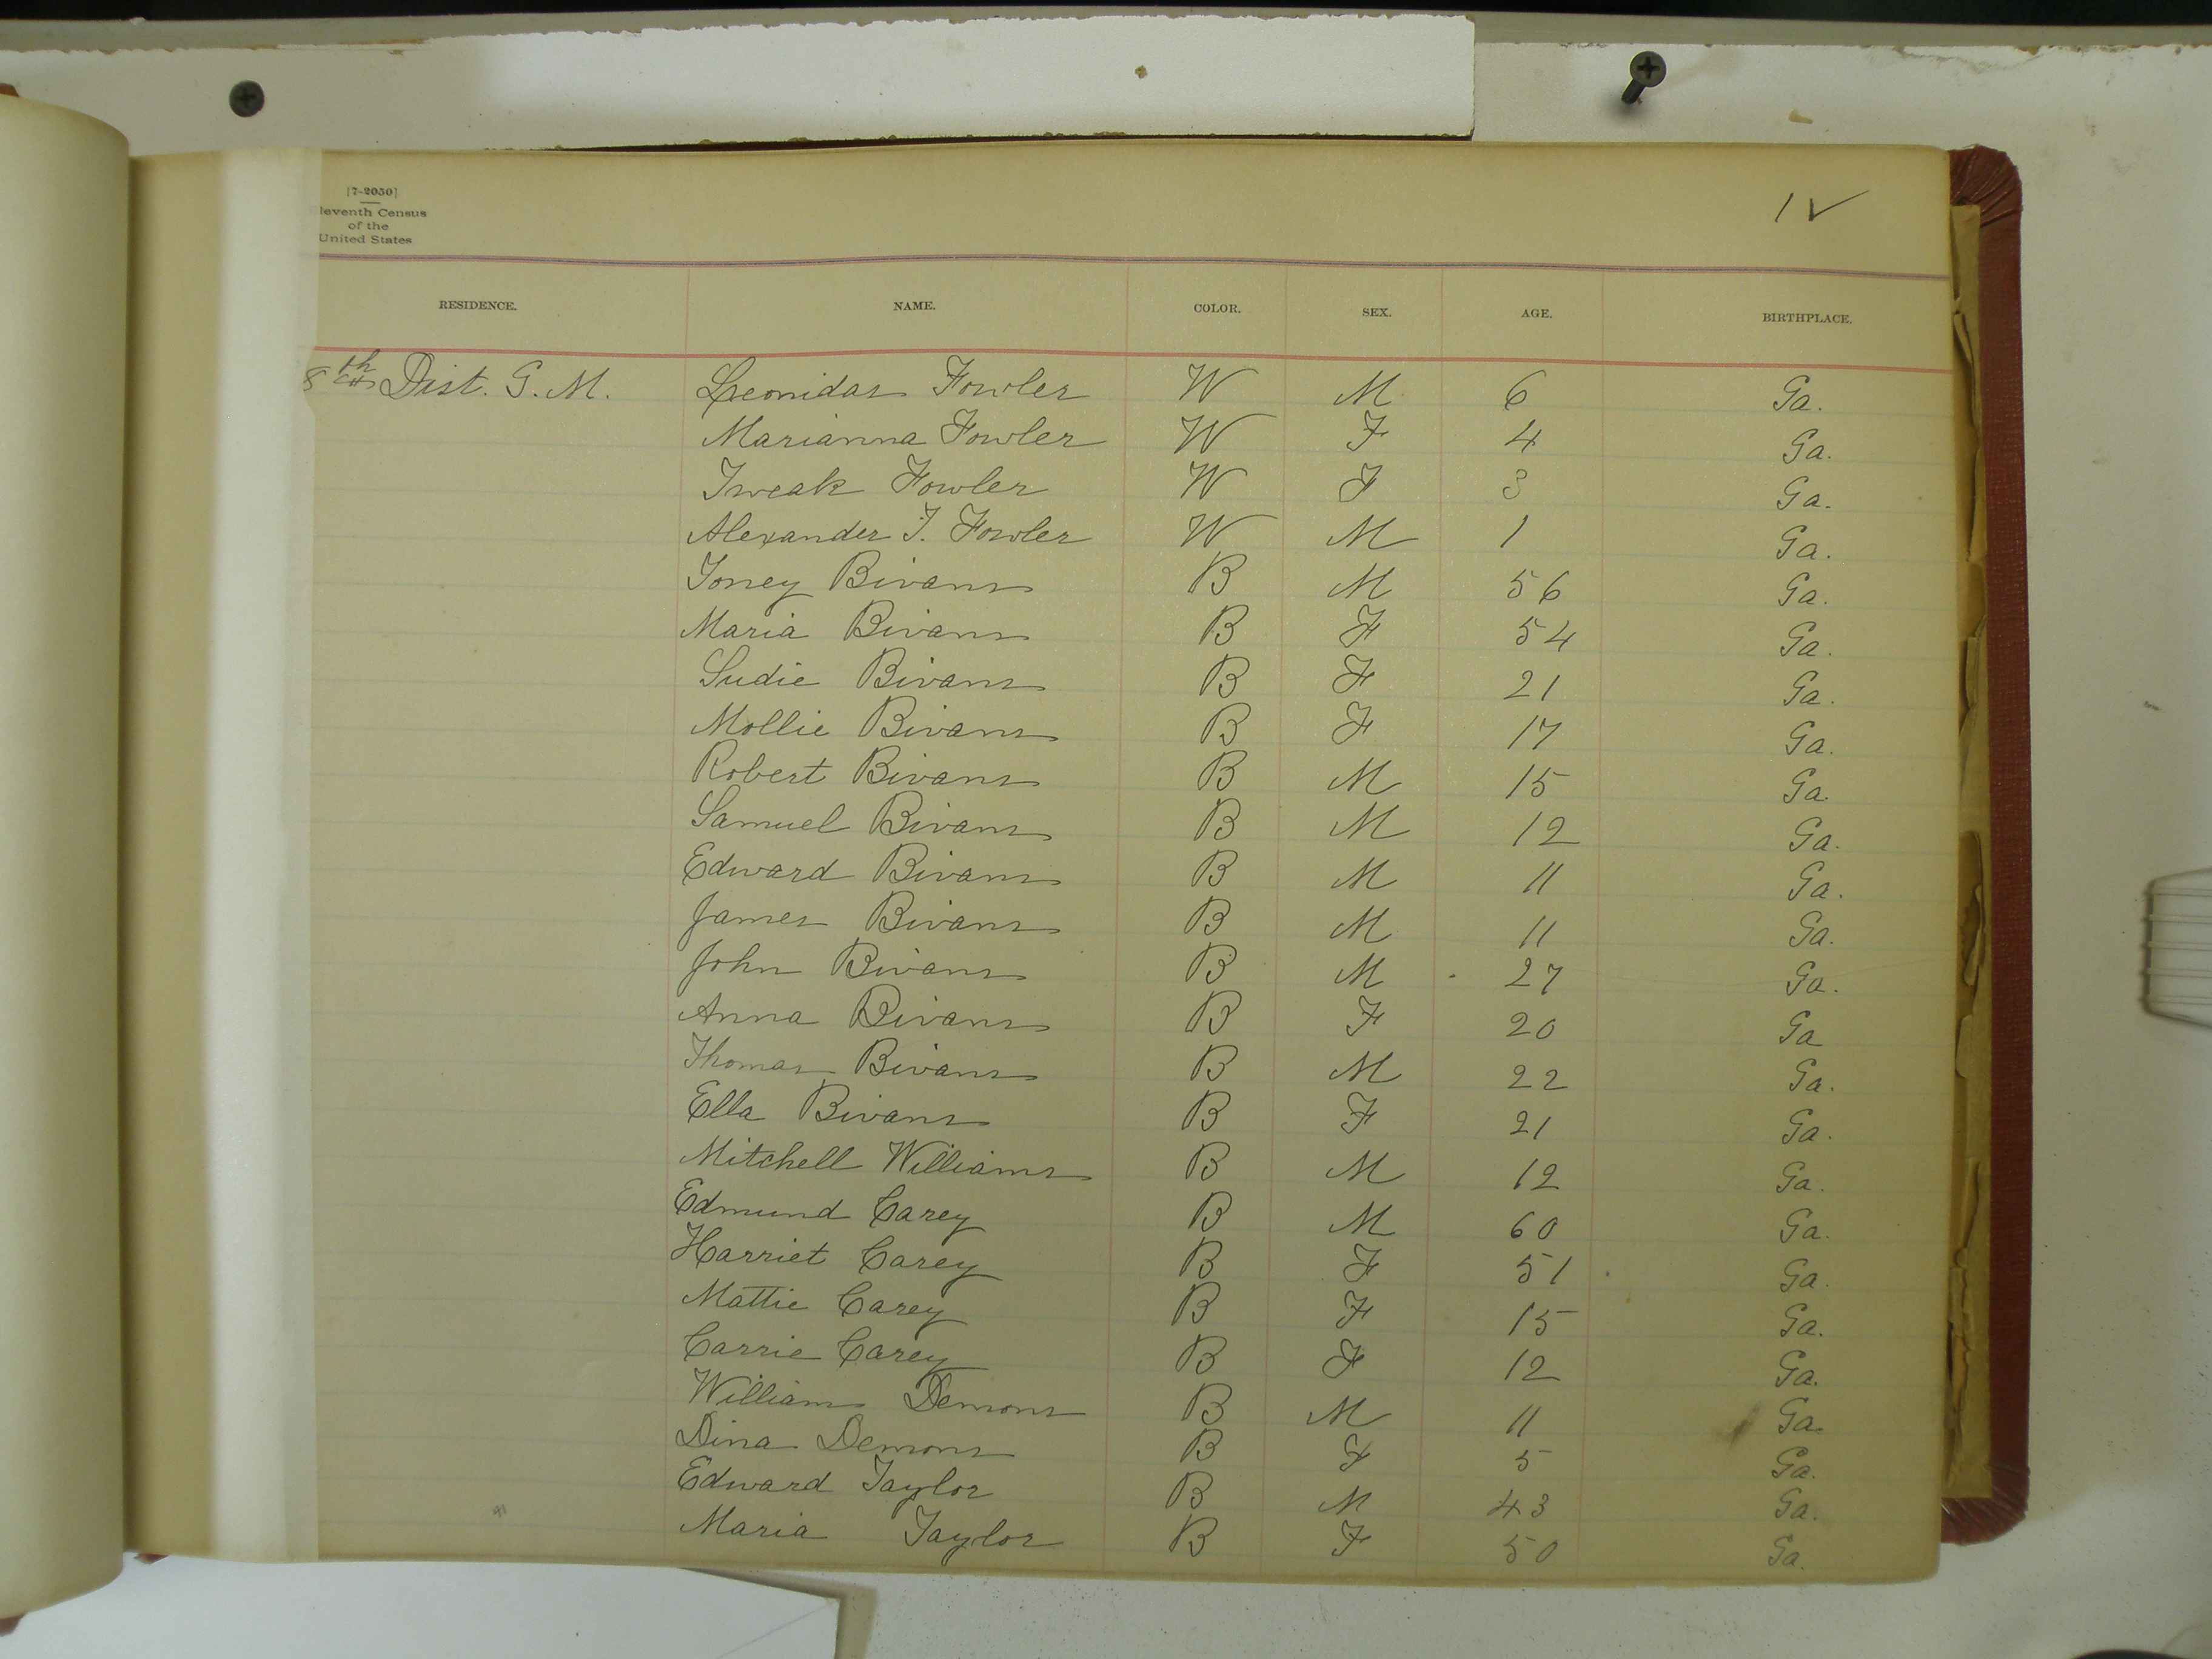 [7-2050]
leventh Census
of the
United States
1 ✓
RESIDENCE. NAME. COLOR. SEX. AGE. BIRTHPLACE.
8th Dist. G. M. Leonidas Fowler W M 6 Ga.
Marianna Fowler W F 4 Ga.
Tweak Fowler W F 3 Ga.
Alexander T. Fowler W M 1 Ga.
Toney Bivans B M 56 Ga.
Maria Bivans B F 54 Ga.
Sudie Bivans B F 21 Ga.
Mollie Bivans B F 17 Ga.
Robert Bivans B M 15 Ga.
Samuel Bivans B M 12 Ga.
Edward Bivans B M 11 Ga.
James Bivans B M 11 Ga.
John Bivans B M 27 Ga.
Anna Bivans B F 20 Ga
Thomas Bivans B M 22 Ga.
Ella Bivans B F 21 Ga.
Mitchell Williams B M 12 Ga.
Edmund Carey B M 60 Ga.
Harriet Carey B F 51 Ga.
Mattie Carey B F 15 Ga.
Carrie Carey B F 12 Ga.
William Demons B M 11 Ga.
Dina Demons B F 5 Ga.
Edward Taylor B M 43 Ga.
Maria Taylor B F 50 Ga.